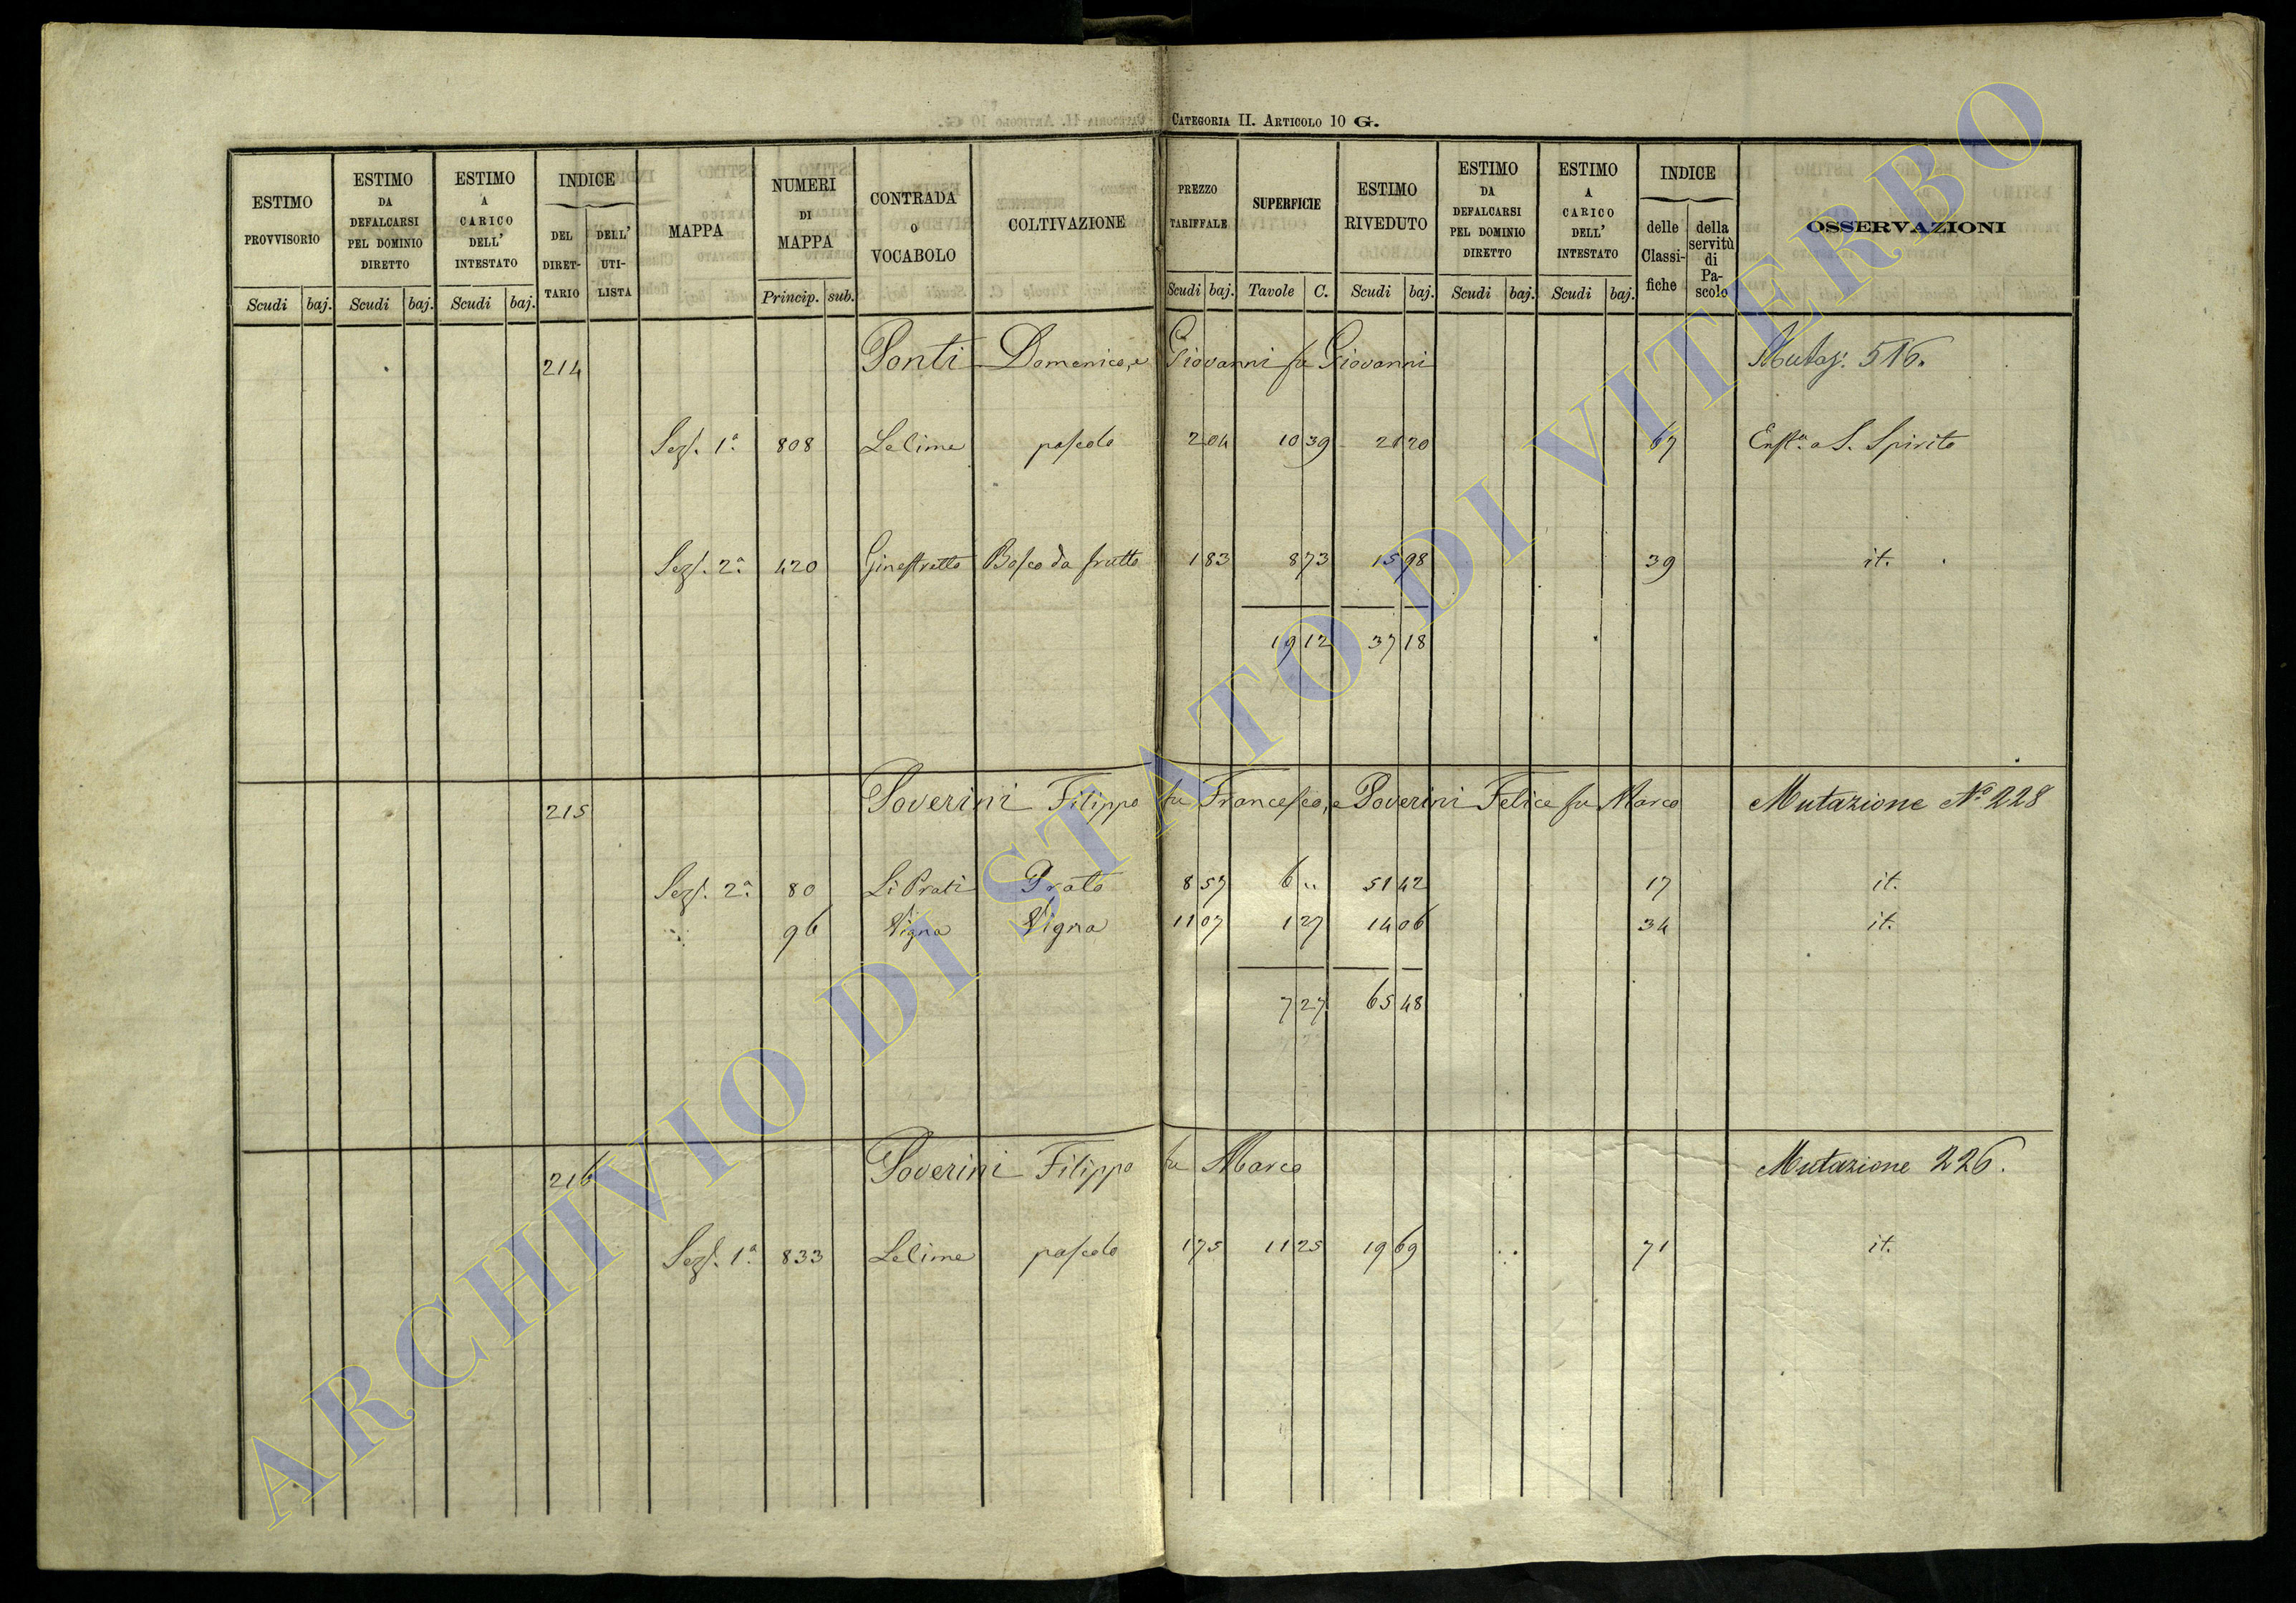 CATEGORIA II. ARTICOLO 10 G.
ESTIMO PROVVISORIO Scudi baj. | ESTIMO DA DEFALCARSI PEL DOMINIO DIRETTO Scudi baj. | ESTIMO A CARICO DELL' INTESTATO Scudi baj. | INDICE DEL DIRET-TARIO DELL' UTI-LISTA | MAPPA | NUMERI DI MAPPA Princip. sub. | CONTRADA O VOCABOLO | COLTIVAZIONE | PREZZO TARIFFALE Scudi baj. | SUPERFICIE Tavole C. | ESTIMO RIVEDUTO Scudi baj. | ESTIMO DA DEFALCARSI PEL DOMINIO DIRETTO Scudi baj. | ESTIMO A CARICO DELL' INTESTATO Scudi baj. | INDICE delle Classi-fiche della servitù di Pa-scolo | OSSERVAZIONI
214 Ponti Domenico, e Giovanni fu Giovanni Mutaz. 516.
Sez. 1a 808 Le Cime pascolo 2 04 10 39 21 20 67 Enfta. a S. Spirito
Sez. 2a 420 Ginestretto Bosco da frutto 1 83 8 73 15 98 39 it.
19 12 37 18
215 Soverini Filippo fu Francesco, e Soverini Felice fu Marco Mutazione No 228
Sez. 2a 80 Li Prati Prato 8 57 6 .. 51 42 17 it.
96 Vigna Vigna 11 07 1 27 14 06 34 it.
7 27 65 48
216 Soverini Filippo fu Marco Mutazione 226.
Sez. 1a 833 Le Cime pascolo 1 75 11 25 19 69 71 it.
ARCHIVIO DI STATO DI VITERBO